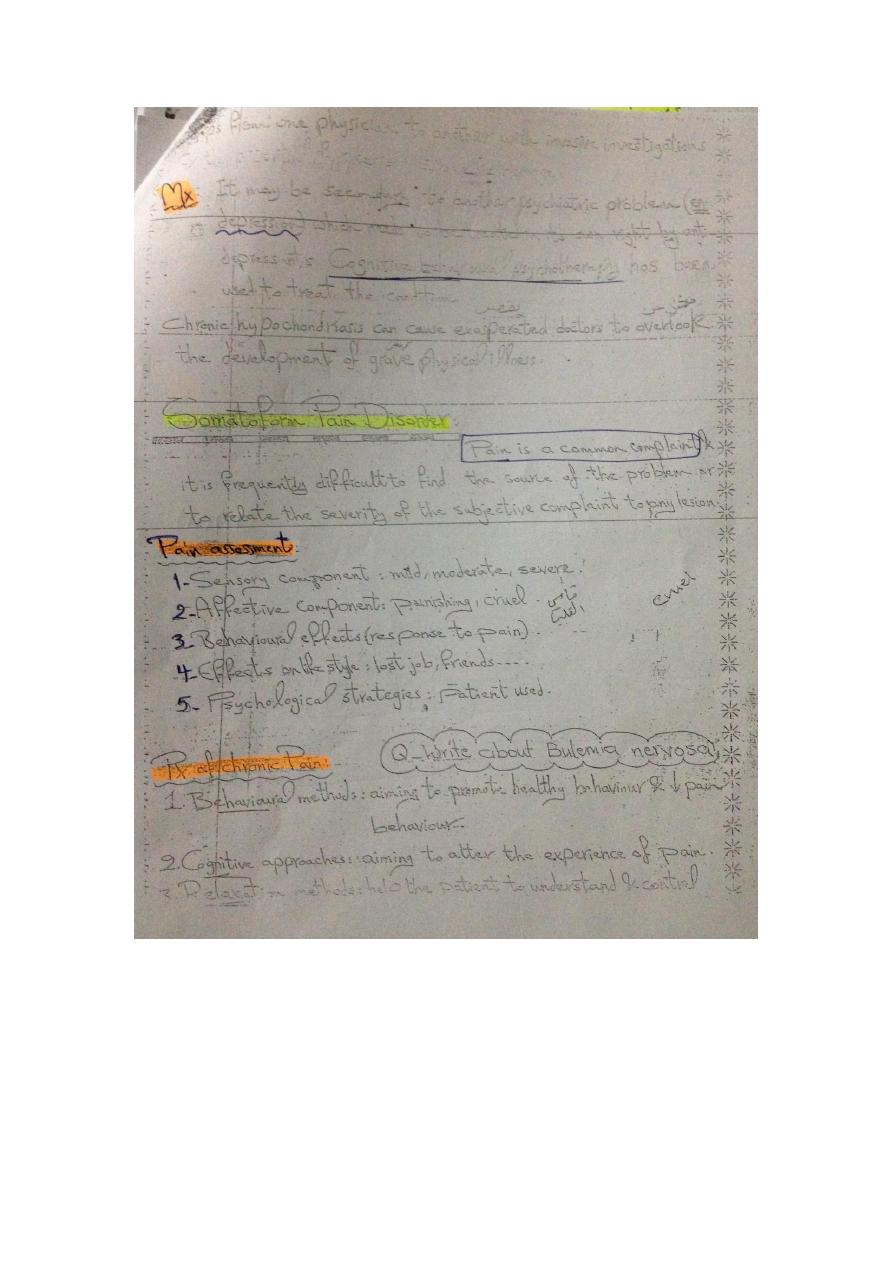 from one physician to another with invasive investigations
Mx: It may be secondary to another psychiatric problem (eg
depression) which needs to be treated in its own right by anti
depressants. Cognitive behavioural psychotherapy has been
used to treat the condition
Chronic hypochondriasis can cause exasperated doctors to overlook
the development of grave physical illness.
Somatoform Pain Disorder
Pain is a common complaint &
it is frequently difficult to find the source of the problem or
to relate the severity of the subjective complaint to any lesion
Pain assessment:
1- Sensory component : mild, moderate, severe.
2- Affective Component: punishing, cruel . قاسي القلب cruel
3- Behavioural effects (response to pain).
4- Effects on life style : lost job, friends----.
5- Psychological strategies : Patient used.
Q- Write about Bulemia nervosa
Rx of chronic Pain:
1. Behavioural methods : aiming to promote healthy behaviour & ↓ pain
behaviour.
2. Cognitive approaches: aiming to alter the experience of pain.
3. Relaxation methods: help the patient to understand & control